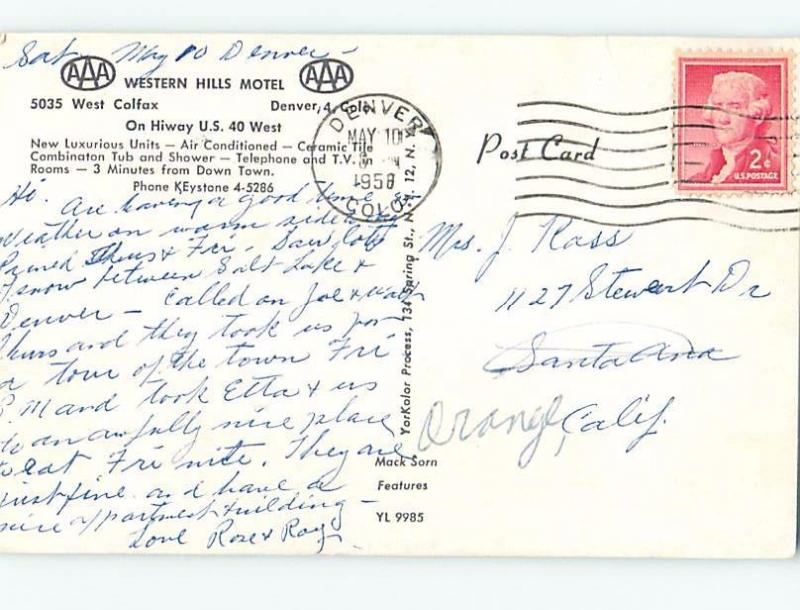 Sat May 10 Denver -
AAA WESTERN HILLS MOTEL AAA
5035 West Colfax Denver, 4, Colo.
On Hiway U.S. 40 West
New Luxurious Units — Air Conditioned — Ceramic Tile
Combinaton Tub and Shower — Telephone and T.V. in
Rooms — 3 Minutes from Down Town.
Phone KEystone 4-5286
Hi. Are having a good time &
Weather on warm side
Rained Thurs & Fri. Saw lots
of snow between Salt Lake &
Denver - Called on Joe &
Thurs and they took us for
a tour of the town Fri
P.M and took Etta & us
to an awfully nice place
to eat Fri nite. They are
just fine and have a
nice appartment building -
Love Rose & Roy
YorKolor Process, 134 Spring St., N.Y. 12, N.Y.
Mack Sorn
Features
YL 9985
DENVER
MAY 10
1958
COLO.
Post Card
2¢
U.S. POSTAGE
Mrs. J. Rass
1127 Stewart Dr
Santa Ana
Orange, Calif.